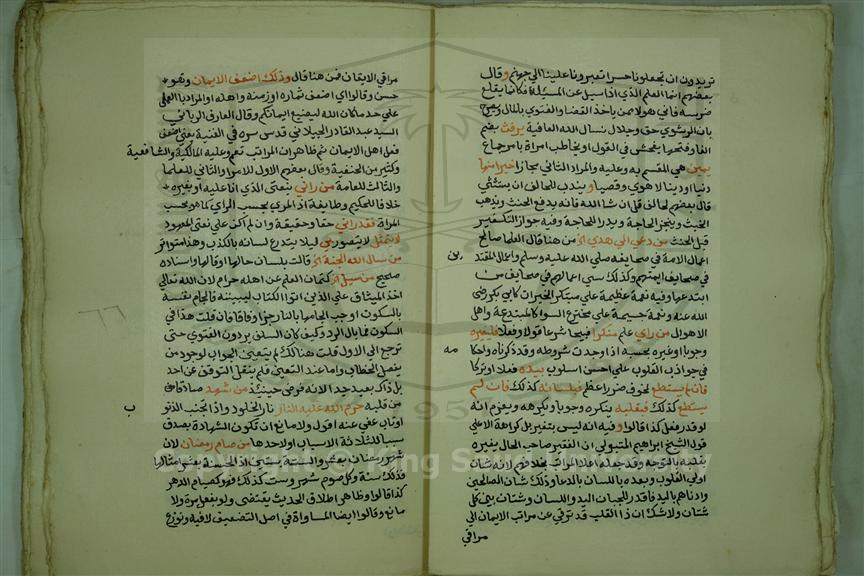 تريدون ان تجعلونا جسرا تعبرون علينا الي جهنم وقال
بعضهم انما العلم الذي اذا سيل عن المسيلة فكانما يقلع
ضرسه فاني هولا ممن ياخذ القضا والفتوي بالمال
بان الرشوي حق وحلال نسال الله العافية يرفث بضم
الفا وفتحها يفحش في القول او يخاطب امراة بامر جماع
يمين هي المقسم به وعليه والمراد الثاني مجازا خيرا منها
دنيا او دينا لا هوي ويندب للحالف ان يستثني
قال بعضهم لحالف قل ان شا الله فانه يدفع الحنث ويذهب
الخبث وينجز الحاجة ويدر اللجاجة وفيه جواز التكفير
قبل الحنث من دعي الي هدي الخ من هنا قال العلما صالح
اعمال الامة في صحايفه صلي الله عليه وسلم واعمال المقتد
في صحايف ايمتهم وكذلك سيي اعمالهم في صحايف من
ابتدعها وفيه نعمة عظيمة علي مبتكر الخيرات كابي بكر رضي
الله عنه ونقمة جسيمة علي مخترع السوا كالمبتدعة واهل
الاهوال من راي علم منكرا قبيحا شرعا قولا وفعلا فليغيره
وجوبا او غيره بحسبه اذا وجدت شروطه وقد ذكرناه واحكا
مه في جواذب القلوب علي احسن اسلوب بيده فعلا او تركا
فان لم يستطع لخوف ضرر اعظم فبلسانه كذلك فان لم
يستطع كذلك فبقلبه ينكره وجوبا ويكرهه ويعزم انه
لو قدر فعل كذا قالوا وفيه انه ليس بتغيير بل كراهة الاعلي
قول الشيخ ابراهيم المتبولي ان الفقير صاحب الحال يغيره
بقلبه بالتوجه وقد جعله اعلا المراتب بخلافهم لانه شان
اولي القلوب وبعده باللسان بالدعا وذلك شان الصالحين
وادناهم باليد فاقدر للجبان اليد واللسان وشتان بين كل
شتان ولا شك ان ذا القلب قد ترقي عن مراتب الايمان الي
مراقي
مراقي الايقان فمن هنا قال وذلك اضعف الايمان وهو
حسن وقالوا اي اضعف ثماره او زمنه واهله او المراد با العمل
علي حد ما كان الله ليضيع ايمانكم وقال العارف الرباني
السيد عبد القادر الجيلاني قدس سره في الغنية يعني اضعف
فعل اهل الايمان ثم ظاهر ان المراتب تعم وعليه المالكية والشافعية
وكثير من الحنفية وقال بعضهم الاول للامرا والثاني للعلما
والثالث للعامة من راني بنعتي الذي انا عليه او بغيره
خلافا للحكيم وطايفة اذ المري بحسب الراي كما هو بحسب
المراة فقد راني حقا وحقيقة وان لم اكن علي نعتي المعهود
لا يتمثل لا يتصور بي ليلا يتدرع لسانه بالكذب وهذا متواتر
من سال الله الجنة الخ قالت بلسان حالها او قالها واسناده
صحيح من سيل الخ كتمان العلم عن اهله حرام لان الله تعالي
اخذ الميثاق علي الذين اتوا الكتاب ليبيننه فالجام نفسه
بالسكوت اوجب الجامها بالنار جزا وفاقا فان قلت هذا في
السكوت فما بال الرد وكيف كان السلف يردون الفتوي حتي
ترجع الي الاول قلت هنالك لم يتعين الجواب لوجود من
يفصل الخطاب واما عند التعين فلم ينقل التوقف عن احد
بل ذاك بعيد جدا لانه فرض حينئذ من شهد صادقا من
من قلبه حرم الله عليه النار نار الخلود واذا تجنب الذنو
ب او تاب عفي عنه اقول ولا مانع ان تكون الشهادة بصدق
سببا لثلاثة الاسباب اولاحدها من صام رمضان لان
شهر رمضان بعشر والستة بستين اذ الحسنة بعشر امثالها
فذلك سنة وكل صوم شهر وست كذلك فهو كصيام الدهر
كذا قالوا وظاهر اطلاق الحديث يقتضي ولو بفعل مرة ولا
مانع وقالوا ايضا المساواة في اصل التضعيف لا فيه ونوزع
Copyright © King Saud University
1957